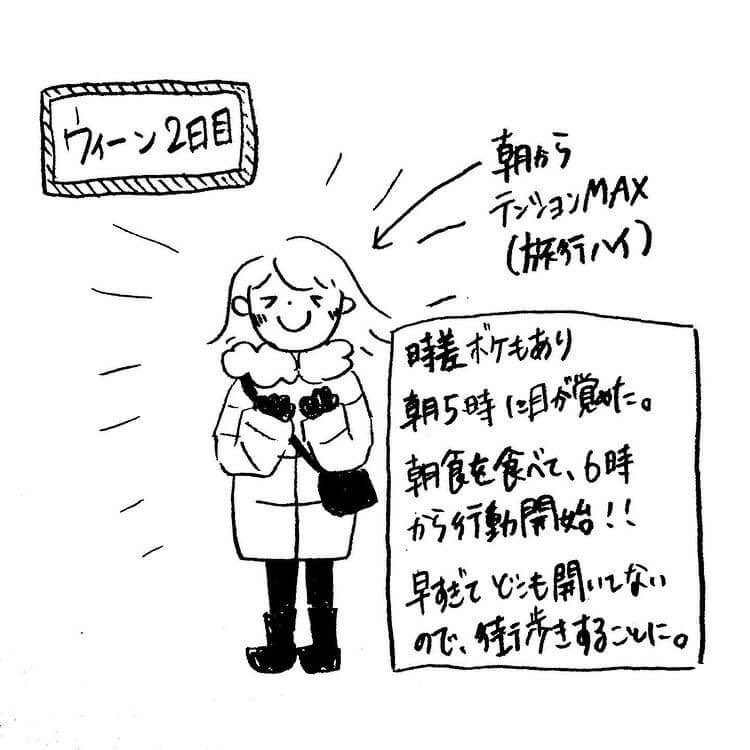 ウィーン2日目
朝から
テンションMAX
(旅行ハイ)
時差ボケもあり
朝5時に目が覚めた。
朝食を食べて、6時
から行動開始!!
早すぎてどこも開いてない
ので、街歩きすることに。